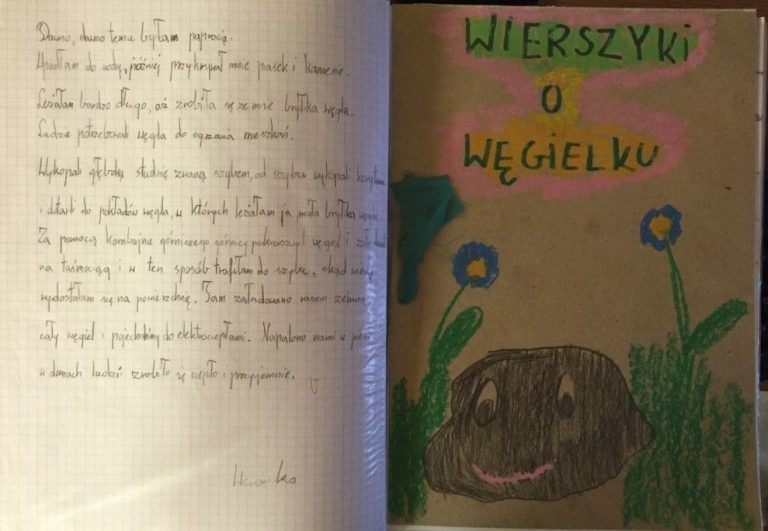 Dawno, dawno temu byłam paprocią.
Upadłam do wody, później przykrywał mnie piasek i kamienie.
Leżałam bardzo długo, aż zrobiła się ze mnie bryłka węgla.
Ludzie potrzebowali węgla do ogrzania mieszkań.
Wykopali głęboką studnię zwaną szybem, od szybu wykopali korytarze
i dotarli do pokładów węgla, w których leżałam ja, mała bryłka węgla.
Za pomocą kombajnu górniczego górnicy pokruszyli węgiel i
na taśmociąg i w ten sposób trafiłam do szybu, skąd windą
wydostałam się na powierzchnię. Tam załadowano razem ze mną
cały węgiel i pojechaliśmy do elektrociepłowni. Napalono nami w piecu
w domach ludzi zrobiło się ciepło i przyjemnie.
Weronika
WIERSZYKI
O
WĘGIELKU